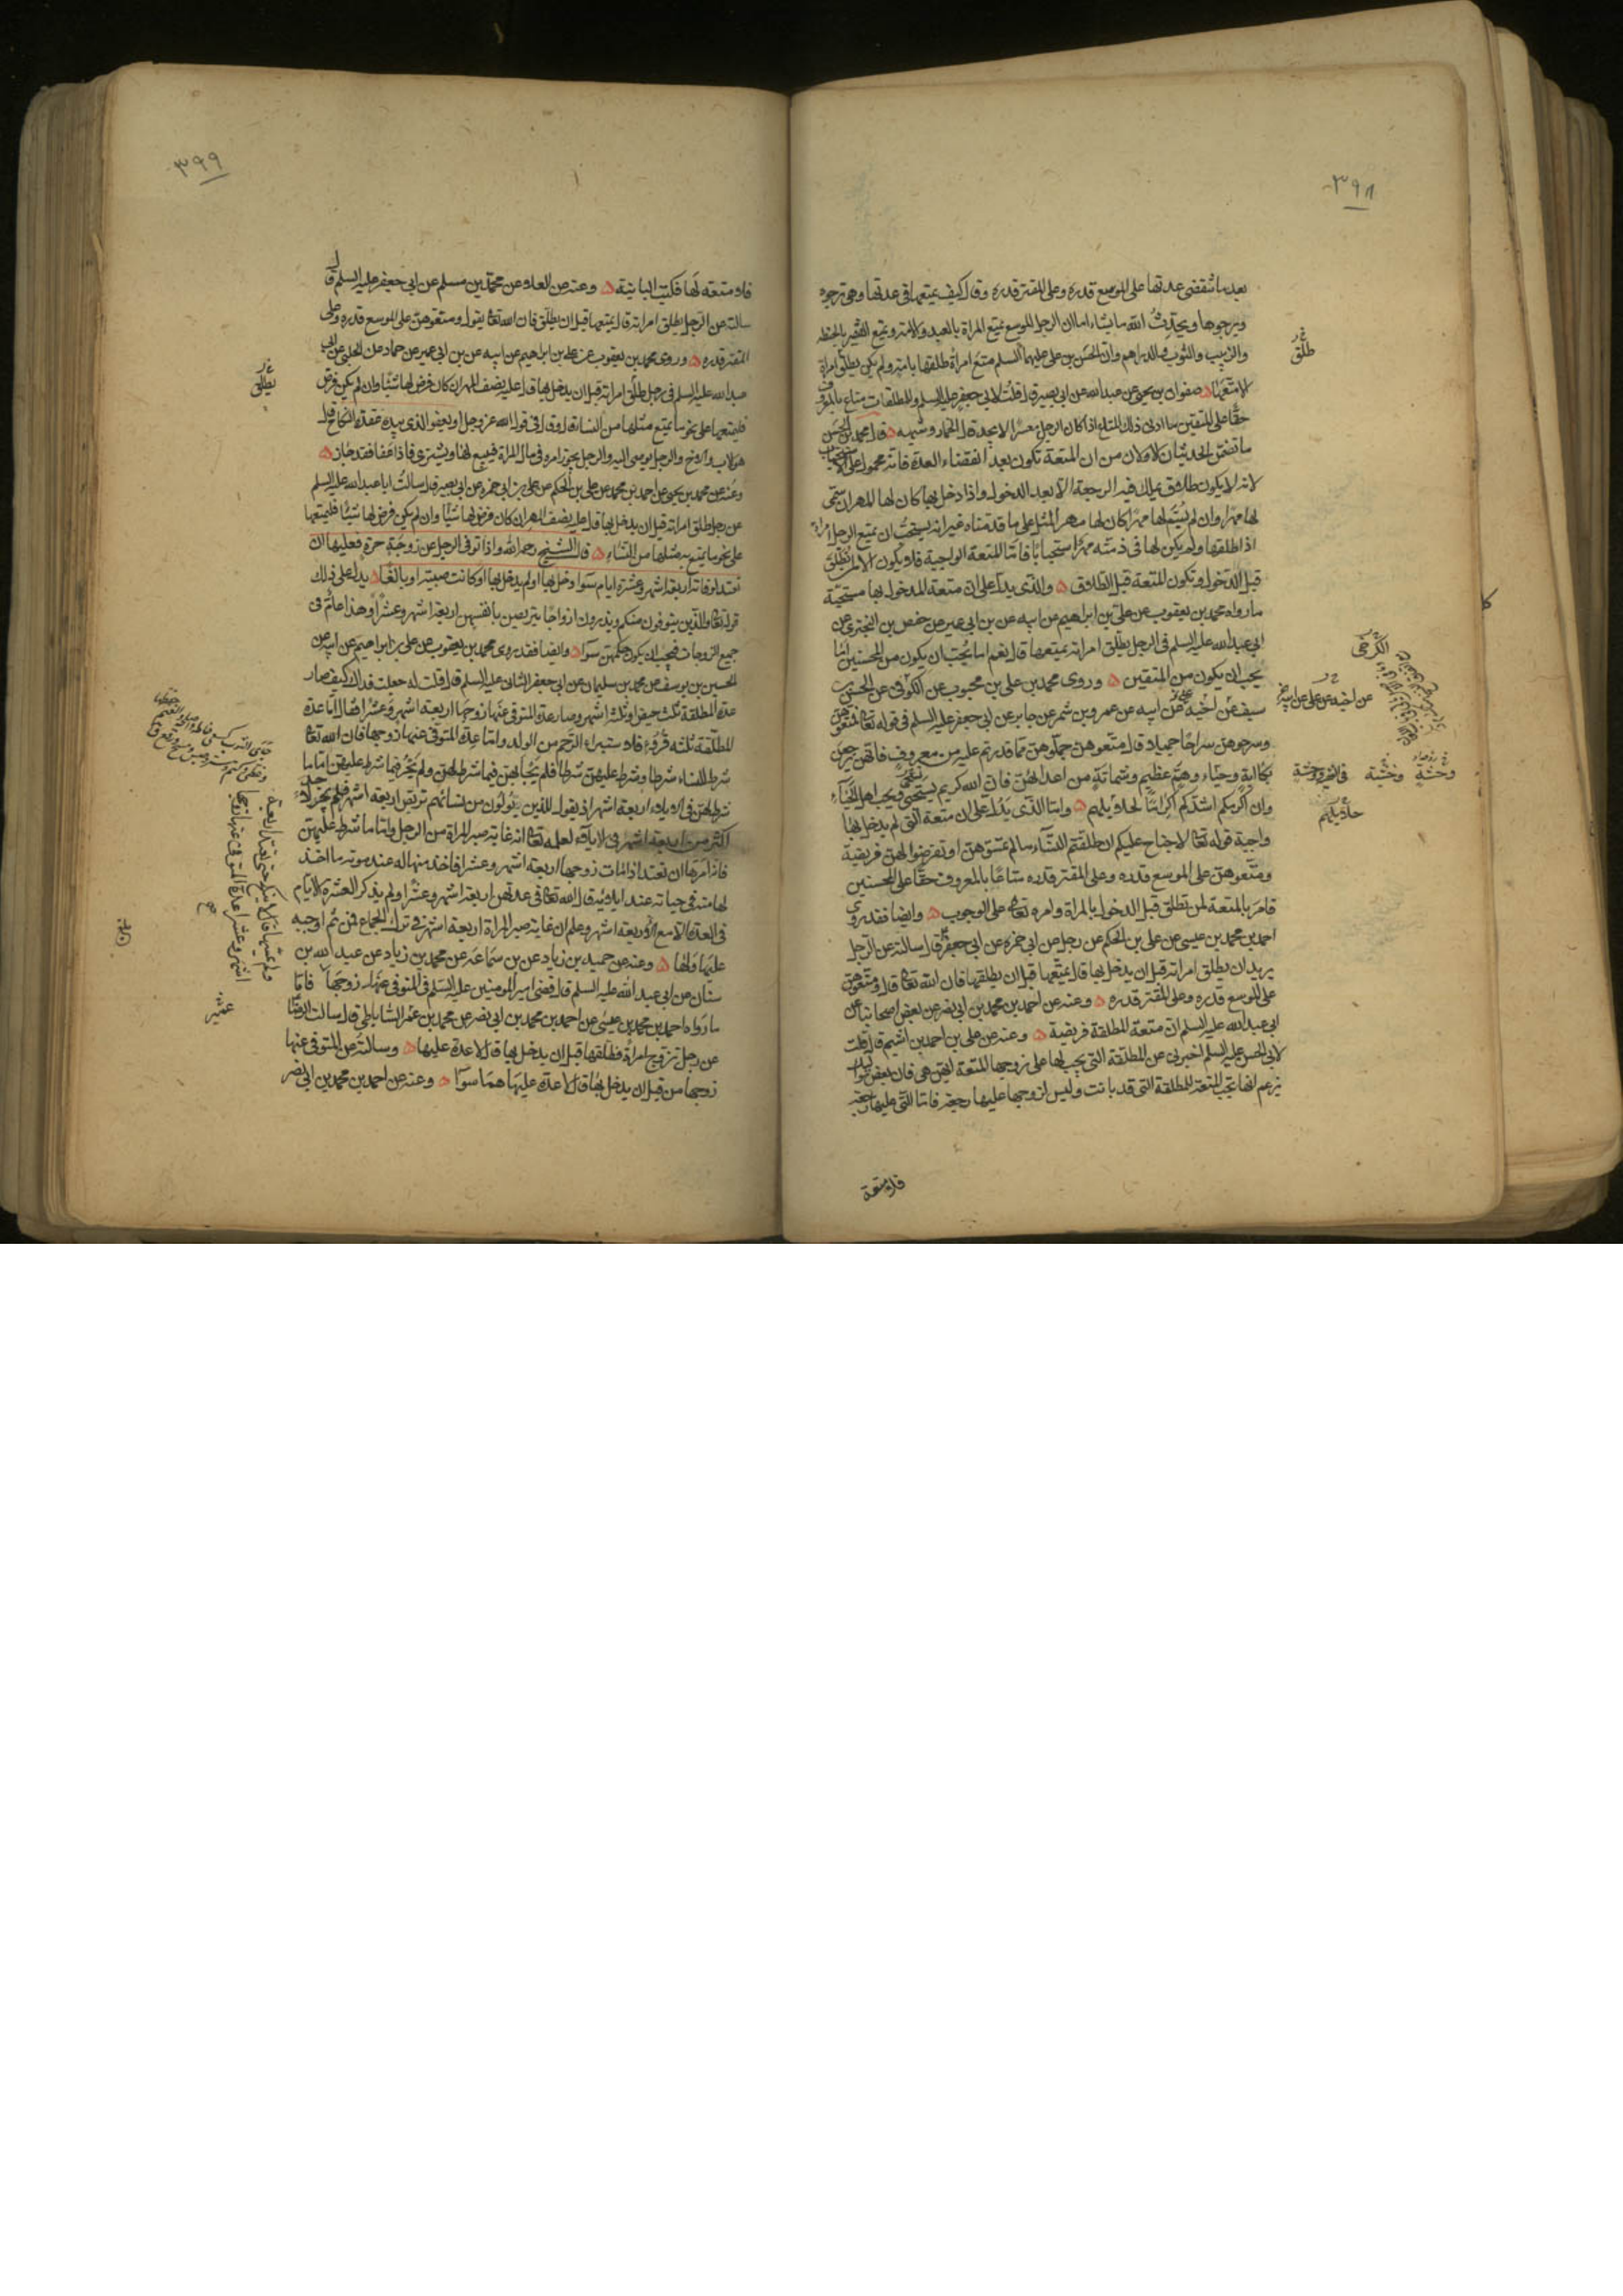 ٣٩٨
بعد ما تنقضي عدتها على الموسع قدره وعلى المقتر قدره وقال كيف يمتعها في عدتها وهي ترجوه
ويرجوها ويحدث الله ما يشاء اما ان الرجل الموسع يمتع المراة بالعبد والامة ويمتع الفقير بالحنطة
والزبيب والثوب والدراهم وان الحسن بن علي عليهما السلم متع امراة طلقها بامة ولم يكن يطلق امراة
الا متعها صفوان بن يحيى عن عبد الله عن ابي بصير قال قلت لابي جعفر عليه السلم وللمطلقات متاع بالمعروف
حقا على المتقين ما ادنى ذلك المتاع اذا كان الرجل معسرا لا يجد قال الخمار وشبهه قال محمد بن الحسن
ما تضمن الحديثان الاولان من ان المتعة تكون بعد انقضاء العدة فانه محمول على
لانه لا يكون طلاق يملك فيه الرجعة الا بعد الدخول واذا دخل بها كان لها المهر ان سمى
لها مهرا وان لم يسم لها مهرا كان لها مهر المثل على ما قدمناه غير انه يستحب ان يمتع الرجل امراة
اذا طلقها ولم يكن لها في ذمته مهر استحبابا فاما المتعة الواجبة فلا يكون الا لمن تطلق
قبل الدخول وتكون المتعة قبل الطلاق والذي يدل على ان متعة المدخول بها مستحبة
ما رواه محمد بن يعقوب عن علي بن ابراهيم عن ابيه عن بن ابي عمير عن حفص بن البختري عن
ابي عبد الله عليه السلم في الرجل يطلق امراته يمتعها قال نعم اما يحب ان يكون من المحسنين اما
يحب ان يكون من المتقين وروى محمد بن علي بن محبوب عن الكوفي عن الحسن بن
سيف عن اخيه عن ابيه عن عمرو بن شمر عن جابر عن ابي جعفر عليه السلم في قوله تعالى فمتعوهن
وسرحوهن سراحا جميلا قال متعوهن جملوهن مما قدرتم عليه من معروف فانهن يرجعن
بكآبة وحياء وهم عظيم وشماتة من اعدائهن فان الله كريم يستحيي ويحب اهل الحياء
وان اكرمكم اشدكم اكراما لحلايلهم واما الذي يدل على ان متعة التي لم يدخل بها
واجبة قوله تعالى لا جناح عليكم ان طلقتم النساء ما لم تمسوهن او تفرضوا لهن فريضة
ومتعوهن على الموسع قدره وعلى المقتر قدره متاعا بالمعروف حقا على المحسنين
فامر بالمتعة لمن تطلق قبل الدخول بالمراة وامره تعالى على الوجوب وايضا فقد روى
احمد بن محمد بن عيسى عن علي بن الحكم عن رجل عن ابي حمزة عن ابي جعفر قال سالته عن الرجل
يريد ان يطلق امراته قبل ان يدخل بها قال يمتعها قبل ان يطلقها فان الله تعالى قال ومتعوهن
على الموسع قدره وعلى المقتر قدره وعنه عن احمد بن محمد بن ابي نصر عن بعض اصحابنا عن
ابي عبد الله عليه السلم ان متعة المطلقة فريضة وعنه عن علي بن احمد بن اشيم قال قلت
لابي الحسن عليه السلم اخبرني عن المطلقة التي يجب لها على زوجها المتعة ايهن هي فان بعض مواليك
يزعم انها تجب المتعة للمطلقة التي قد بانت وليس لزوجها عليها رجعة فاما التي عليها رجعة
فلا متعة
طلق
الكرخي
حلايلهم
٣٩٩
فلا متعة لها فكتب البائنة وعنه عن العلاء عن محمد بن مسلم عن ابي جعفر عليه السلم قال
سالته عن الرجل يطلق امراته قال يمتعها قبل ان يطلق فان الله تعالى يقول ومتعوهن على الموسع قدره وعلى
المقتر قدره وروى محمد بن يعقوب عن علي بن ابراهيم عن ابيه عن بن ابي عمير عن حماد عن الحلبي عن ابي
عبد الله عليه السلم في رجل طلق امراته قبل ان يدخل بها قال عليه نصف المهر ان كان فرض لها شيئا وان لم يكن فرض
فليمتعها على نحو ما يمتع مثلها من النساء قال وقال في قول الله عز وجل او يعفو الذي بيده عقدة النكاح قال
هو الاب والاخ والرجل يوصى اليه والرجل يجوز امره في مال المراة فيبيع لها ويشتري فاذا عفا فقد جاز
وعنه عن محمد بن يحيى عن احمد بن محمد عن علي بن الحكم عن علي بن ابي حمزة عن ابي بصير قال سالت ابا عبد الله عليه السلم
عن رجل طلق امراته قبل ان يدخل بها قال عليه نصف المهر ان كان فرض لها شيئا وان لم يكن فرض لها شيئا فليمتعها
على نحو ما يمتع به مثلها من النساء قال الشيخ رحمه الله واذا توفي الرجل عن زوجة حرة فعليها ان
تعتد لوفاته اربعة اشهر وعشرة ايام سواء دخل بها او لم يدخل بها او كانت صبية او بالغا يدل على ذلك
قوله تعالى والذين يتوفون منكم ويذرون ازواجا يتربصن بانفسهن اربعة اشهر وعشرا وهذا عام في
جميع الزوجات فيجب ان يكون حكمهن سواء وايضا فقد روى محمد بن يعقوب عن علي بن ابراهيم عن ابيه عن
الحسين بن يوسف عن محمد بن سليمان عن ابي جعفر الثاني عليه السلم قال قلت له جعلت فداك كيف صار
عدة المطلقة ثلث حيض او ثلثة اشهر وصار عدة المتوفى عنها زوجها اربعة اشهر وعشرا فقال اما عدة
المطلقة ثلثة قروء فلاستبراء الرحم من الولد واما عدة المتوفى عنها زوجها فان الله تعالى
شرط للنساء شرطا وشرط عليهن شرطا فلم يحابهن فيما شرط لهن ولم يجر فيما شرط عليهن اما ما
شرط لهن في الايلاء اربعة اشهر اذ يقول للذين يؤلون من نسائهم تربص اربعة اشهر فلم يجز لاحد
اكثر من اربعة اشهر في الايلاء لعلمه تعالى انه غاية صبر المراة من الرجل واما ما شرط عليهن
فانه امرها ان تعتد اذا مات زوجها اربعة اشهر وعشرا فاخذ منها له عند موته ما اخذ
لها منه في حياته عند ايلائه قال الله تعالى في عدتهن اربعة اشهر وعشرا ولم يذكر العشرة الايام
في العدة الا مع الاربعة اشهر وعلم ان غاية صبر المراة اربعة اشهر في ترك الجماع فمن ثم اوجبه
عليها ولها وعنه عن حميد بن زياد عن بن سماعة عن محمد بن زياد عن عبد الله بن
سنان عن ابي عبد الله عليه السلم قال قضى امير المومنين عليه السلم في المتوفى عنها زوجها فاما
ما رواه احمد بن محمد بن عيسى عن احمد بن محمد بن ابي نصر عن محمد بن عمر الساباطي قال سالت الرضا
عن رجل تزوج امراة فطلقها قبل ان يدخل بها قال لا عدة عليها وسالته عن المتوفى عنها
زوجها من قبل ان يدخل بها قال لا عدة عليها هما سواء وعنه عن احمد بن محمد بن ابي نصر
يطلق